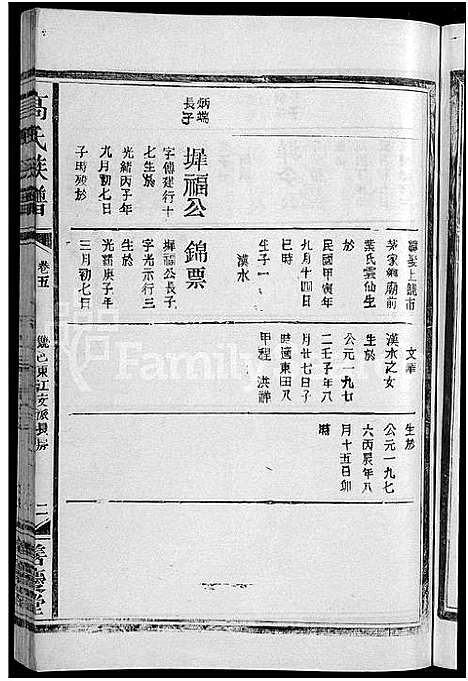 高氏族譜
卷五
幾邑東江支派長房
二
善慶堂
炳端
長子
墀福公
字傳建行十
七生於
光緒丙子年
九月初七日
子時歿於
錦票
墀福公長子
字光示行三
生於
光緒庚子年
三月初七日
繼娶上饒市
茅家嶺廟前
葉氏雲仙生
於
民國甲寅年
九月十四日
巳時
生子一
漢水
文華
漢水之女
生於
公元一九七
二壬子年八
月廿七日子
時適東田八
甲程 洪祥
生於
公元一九七
六丙辰年八
月十五日卯
時